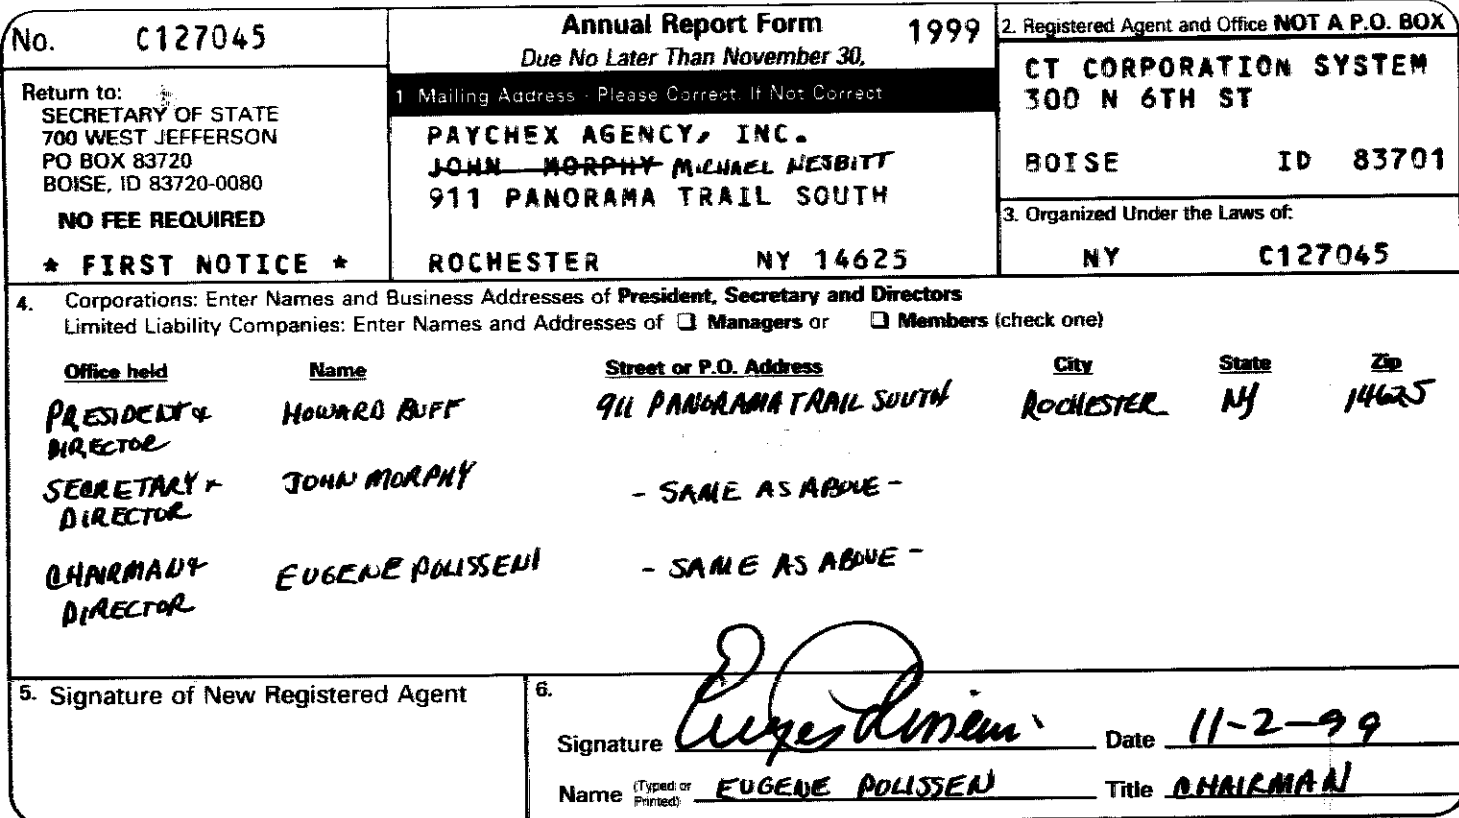 No. C127045
Return to:
SECRETARY OF STATE
700 WEST JEFFERSON
PO BOX 83720
BOISE, ID 83720-0080
NO FEE REQUIRED
* FIRST NOTICE *
Annual Report Form 1999
Due No Later Than November 30,
1 Mailing Address - Please Correct, If Not Correct
PAYCHEX AGENCY, INC.
JOHN MORPHY MICHAEL NESBITT
911 PANORAMA TRAIL SOUTH
ROCHESTER NY 14625
2. Registered Agent and Office NOT A P.O. BOX
CT CORPORATION SYSTEM
300 N 6TH ST
BOISE ID 83701
3. Organized Under the Laws of:
NY C127045
4. Corporations: Enter Names and Business Addresses of President, Secretary and Directors
Limited Liability Companies: Enter Names and Addresses of ❑ Managers or ❑ Members (check one)
Office held Name Street or P.O. Address City State Zip
PRESIDENT & HOWARD BUFF 911 PANORAMA TRAIL SOUTH ROCHESTER NY 14625
DIRECTOR
SECRETARY + JOHN MORPHY - SAME AS ABOVE -
DIRECTOR
CHAIRMAN & EUGENE POLISSENI - SAME AS ABOVE -
DIRECTOR
5. Signature of New Registered Agent
6.
Signature Date 11-2-99
Name (Typed or Printed) EUGENE POLISSEN Title CHAIRMAN